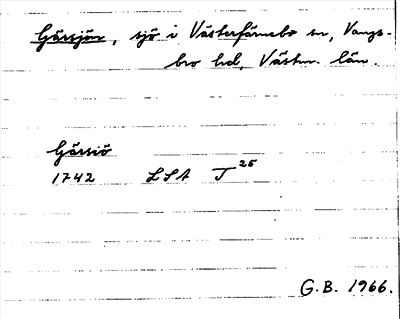 Gärsjön, sjö i Västerfärnebo sn, Vangs-
bro hd, Västm. län.
Gärsiö
1742 LSA T 25
G.B. 1966.